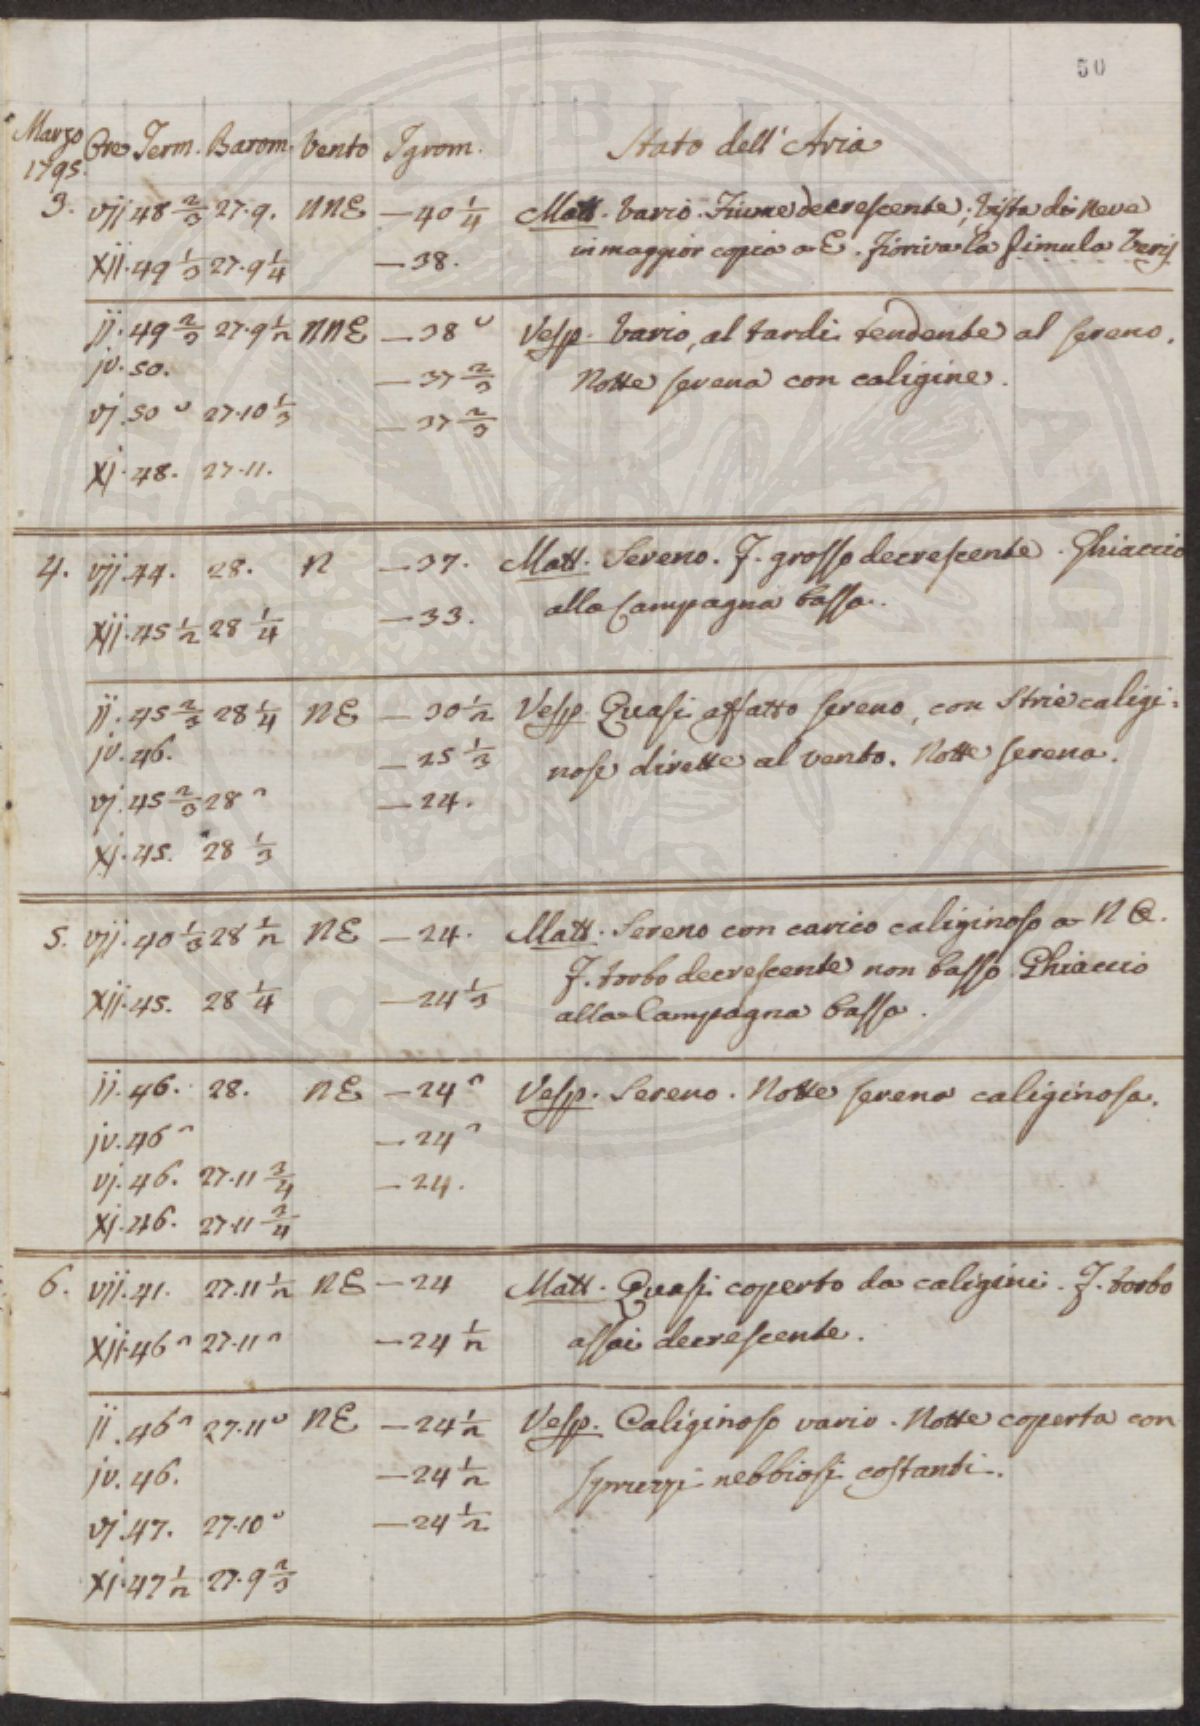 50
Marzo 1795. Ore Term. Barom. Vento Igrom. Stato dell' Aria
3. vij 48 2/3 27.9. NNE —40 1/4 Matt. Vario. Fiume decrescente; Vista di Neve
xij. 49 1/3 27.9 1/4 —38. in maggior copia a E. Fioriva la
ij. 49 2/3 27.9 1/2 NNE —38 ᵕ Vesp. Vario, al tardi tendente al sereno.
jv. 50. —37 2/3 Notte serena con caligine.
vj. 50 ᵕ 27.10 1/3 —37 2/3
xj. 48. 27.11.
4. vij. 44. 28. N —37. Matt. Sereno. F. grosso decrescente. Ghiaccio
xij. 45 1/2 28 1/4 —33. alla Campagna bassa.
ij. 45 2/3 28 1/4 NE —30 1/2 Vesp. Quasi affatto sereno, con strie caligi-
jv. 46. —25 1/3 nose dirette al vento. Notte serena.
vj. 45 2/3 28 ^ —24.
xj. 45. 28 1/3
5. vij. 40 1/3 28 1/2 NE —24. Matt. Sereno con carico caliginoso a N E.
F. torbo decrescente non basso. Ghiaccio
xij. 45. 28 1/4 —24 1/3 alla Campagna bassa.
ij. 46. 28. NE —24 ^ Vesp. Sereno. Notte serena caliginosa.
jv. 46 ^ —24 ^
vj. 46. 27.11 3/4 —24.
xj. 46. 27.11 3/4
6. vij. 41. 27.11 1/2 NE —24 Matt. Quasi coperto da caligini. F. torbo
xij. 46 ^ 27.11 ^ —24 1/2 assai decrescente.
ij. 46 ^ 27.11 ᵕ NE —24 1/2 Vesp. Caliginoso vario. Notte coperta con
jv. 46. —24 1/2 spruzzi nebbiosi costanti.
vj. 47. 27.10 ᵕ —24 1/2
xj. 47 1/2 27.9 2/3